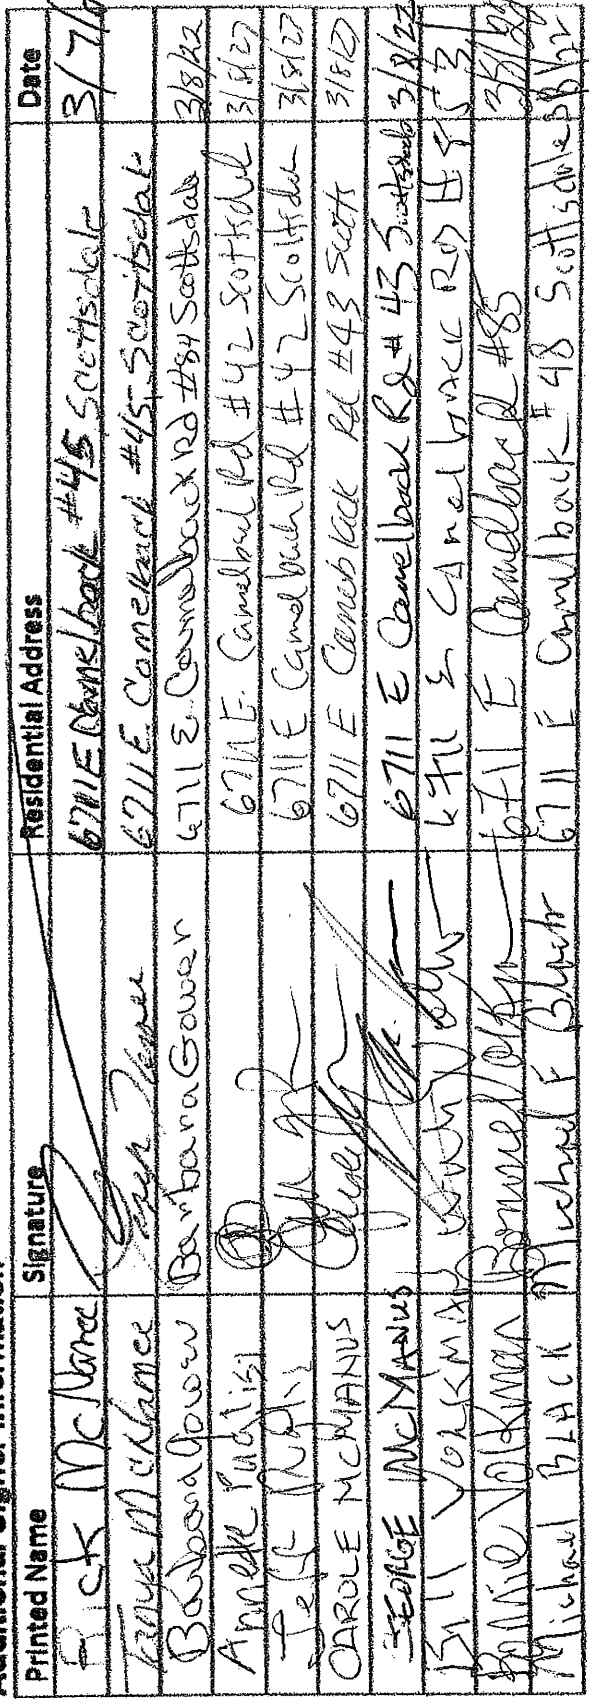 Additional Signer Information
Printed Name Signature Residential Address Date
Rick McNamee 6711 E Camelback #45 Scottsdale 3/7/
Tanya McNamee 6711 E. Camelback #45 Scottsdale
Barbara Gower Barbara Gower 6711 E. Camelback Rd #84 Scottsdale 3/8/22
Annette Puglisi 6711 E. Camelback Rd #42 Scottsdale 3/8/22
Jeff 6711 E Camelback Rd #42 Scottsdale 3/8/22
CAROLE MCMANUS 6711 E Camelback Rd #43 Scotts 3/8/22
GEORGE MCMANUS 6711 E Camelback Rd #43 Scottsdale 3/8/22
Bill VOLKMAN 6711 E Camelback RD #85
Bonnie Volkman Bonnie Volkman 6711 E Camelback #85 3/8/22
Michael BLACK Michael F Black 6711 E Camelback #48 Scottsdale 3/8/22